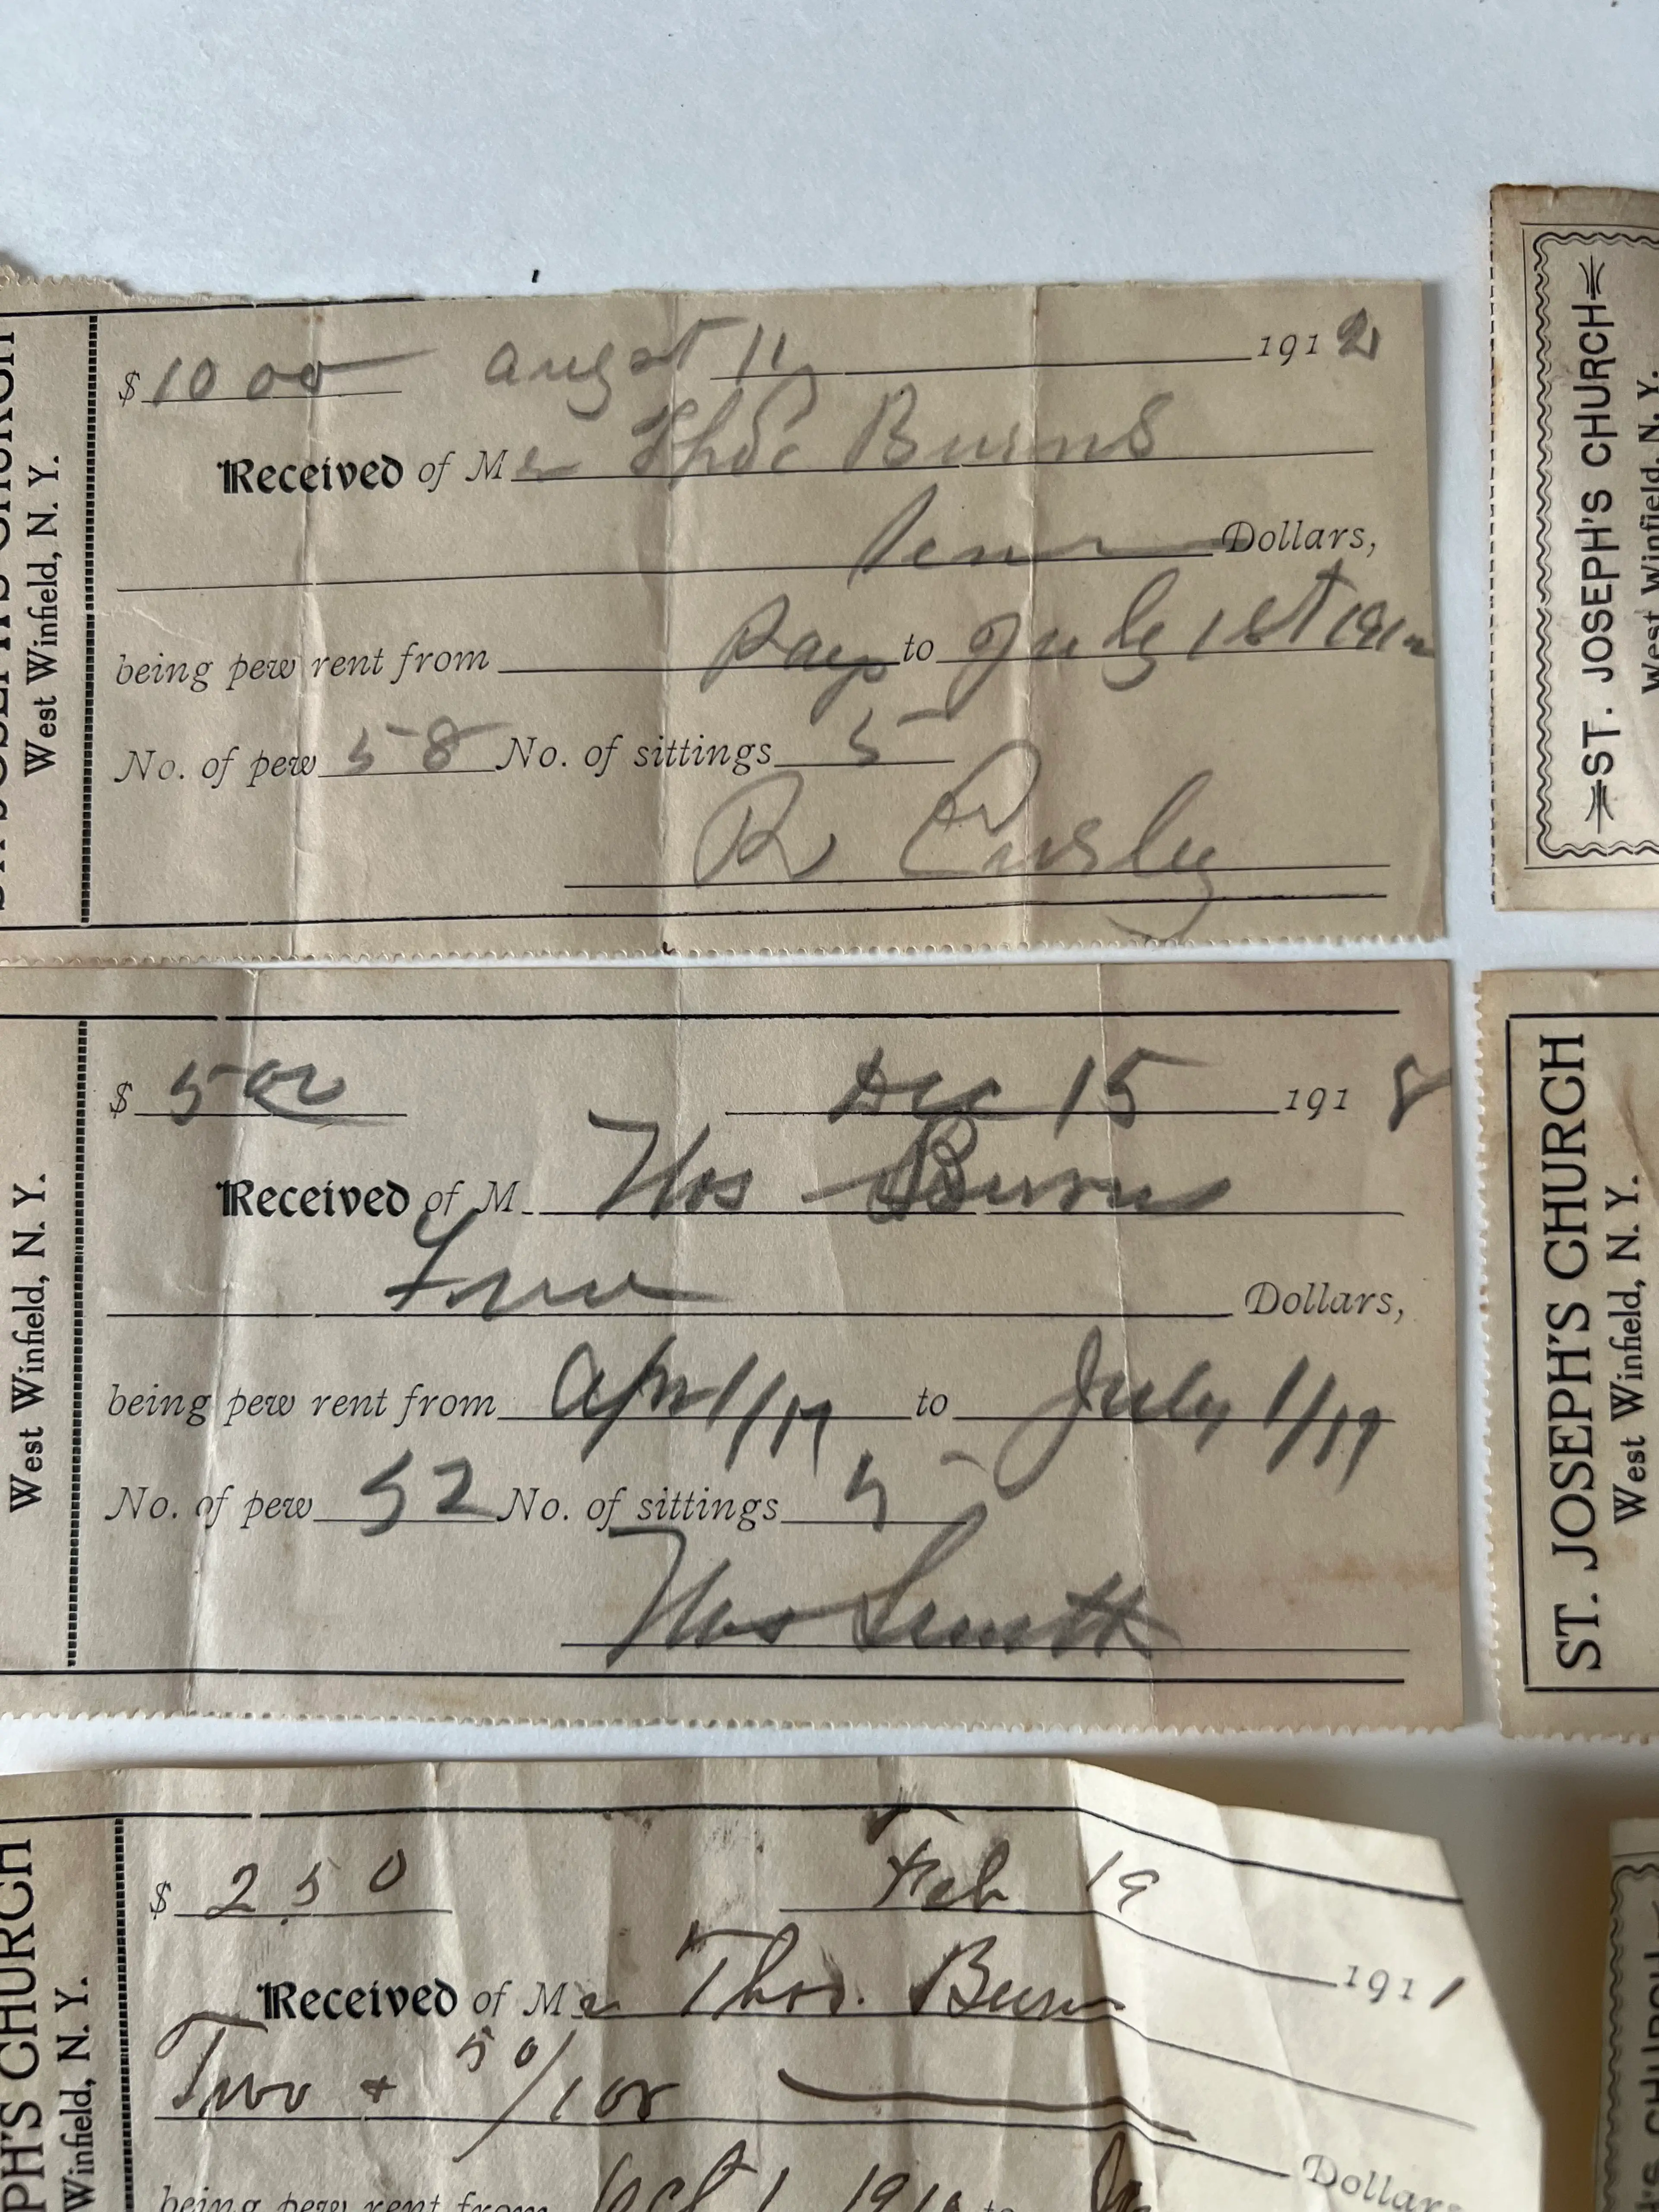 ST. JOSEPH'S CHURCH
West Winfield, N. Y.
$ 10 00 augst 11 1912
Received of Mr Thos Burns
Ten Dollars,
being pew rent from Pays to July 1st 1912
No. of pew 58 No. of sittings 5
R
West Winfield, N. Y.
$ 5 00 Dec 15 1918
Received of M Thos Burns
Five Dollars,
being pew rent from Apr 1/19 to July 1/19
No. of pew 52 No. of sittings 5
Thos Smith
PH'S CHURCH
Winfield, N. Y.
$ 2.50 Feb 19 1911
Received of Mr Thos. Burns
Two + 50/100 Dollars
being pew rent from Oct 1 1910 to
ST. JOSEPH'S CHURCH
West Winfield, N. Y.
ST. JOSEPH'S CHURCH
West Winfield, N. Y.
CHURCH